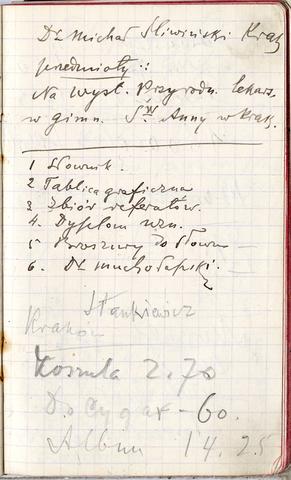 Dr Michał Śliwiński Krak
przedmioty.:
Na wyst. Przyrodn. lekarz.
w gimn. Św. Anny w Krak.
1 Słownik.
2 Tablica graficzna
3 Zbiór referatów.
4. Dyplom uzn.
5 Broszury do Słown
6. Dr
Stankiewicz
Kraków
Koszula 2.70
Do Cygar - 60.
Album 14.25